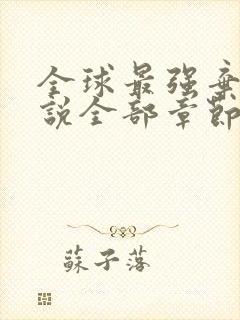 全球最强棄
說全部章節
蘇子落